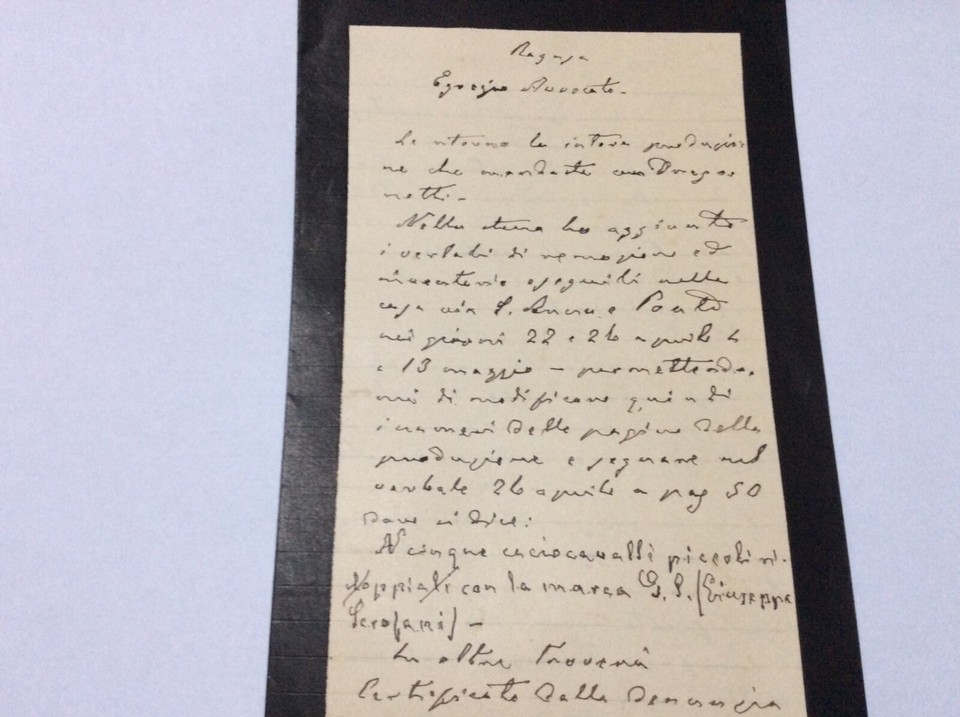 Ragusa
Egregio Avvocato -
Le ritorno la intera produzio
ne che mandaste con Drago
netti -
Nella stessa ho aggiunto
i verbali di remozione ed
inventario eseguiti nella
casa via S. Anna e Ponte
nei giorni 22 e 26 aprile
e 13 maggio - permettendo
mi di modificare quindi
i numeri delle pagine della
produzione e segnare nel
verbale 26 aprile a pag 50
dove si dice:
N cinque caciocavalli piccoli ri-
con la marca G. S. (Giuseppe
Scrofani) -
In oltre troverà
Certificato della denunzia